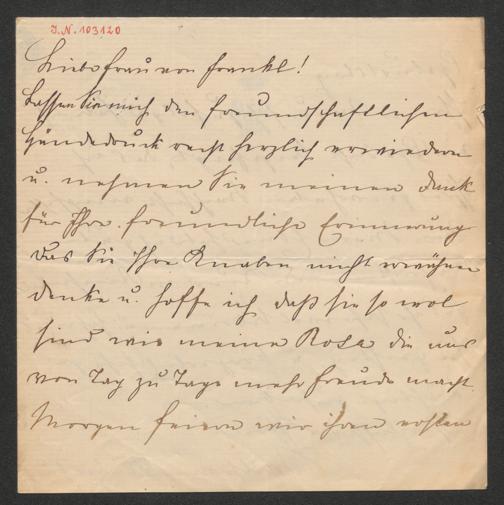 J.N. 103120
Liebe Frau von Frankl!
Lassen Sie mich den freundschaftlichen
Händedruck recht herzlich erwiedern
u. nehmen Sie meinen Dank
für Ihre freundliche Erinnerung
das Sie Ihre Knaben nicht erwähnen
denke u. hoffe ich daß sie so wol
sind wie meine Rosa die uns
von Tag zu Tage mehr Freude macht.
Morgen feiern wir ihren ersten